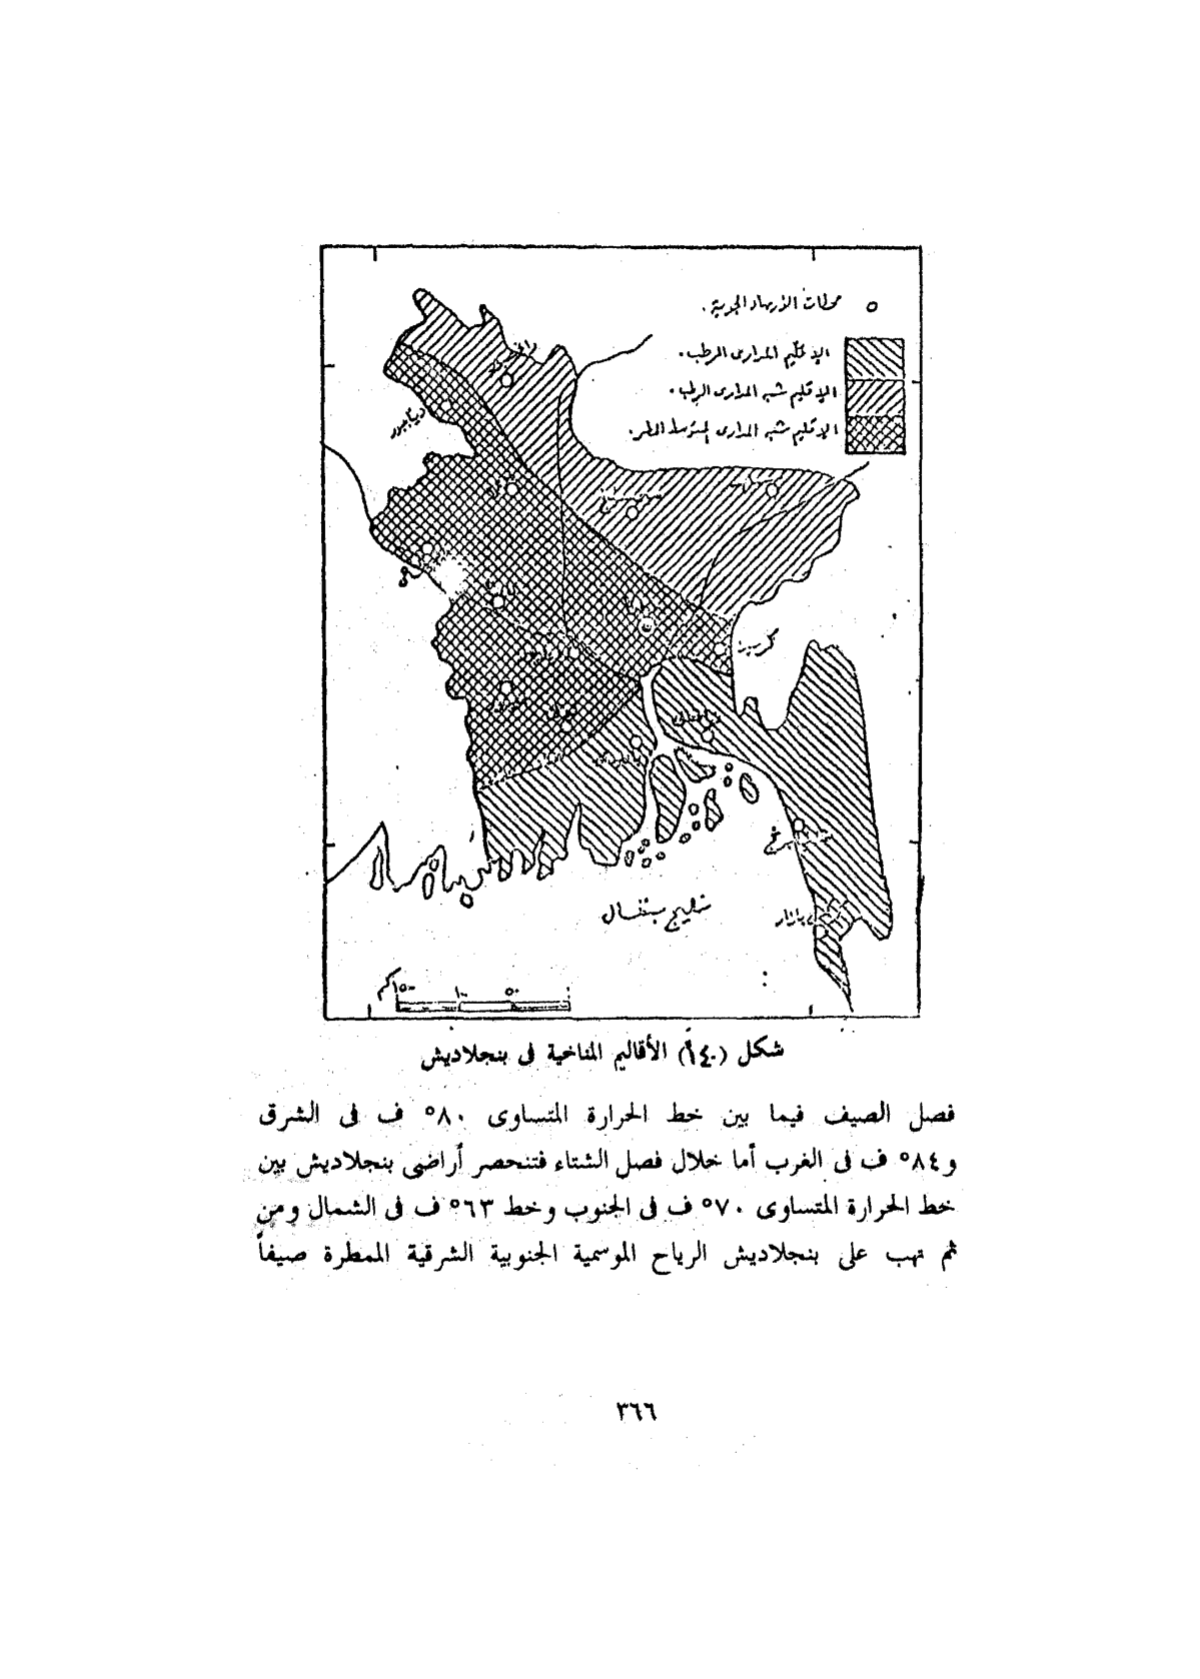 محطات الأرصاد الجوية.
الإقليم المدارى الرطب.
الإقليم شبه المدارى الرطب.
الإقليم شبه المدارى المتوسط المطر.
دينابور
خليج بنغال
بازار
٥٠ ١٠٠ ١٥٠كم
شكل (١٤٠) الأقاليم المناخية فى بنجلاديش
فصل الصيف فيما بين خط الحرارة المتساوى ٨٠° ف فى الشرق
و٨٤° ف فى الغرب أما خلال فصل الشتاء فتنحصر أراضى بنجلاديش بين
خط الحرارة المتساوى ٧٠° ف فى الجنوب وخط ٦٣° ف فى الشمال ومن
ثم تهب على بنجلاديش الرياح الموسمية الجنوبية الشرقية الممطرة صيفاً
٣٦٦